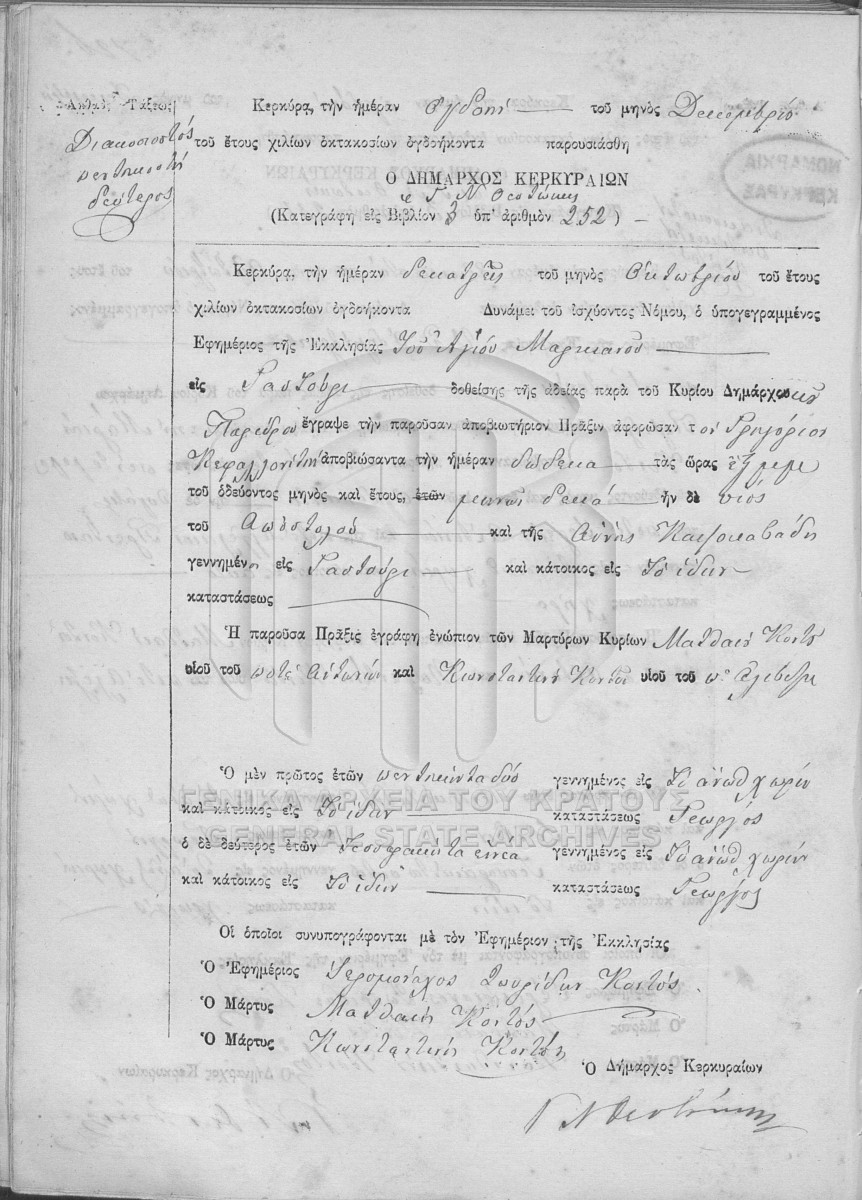 Ἀριθμὸς Τάξεως
Διακοσιοστός
πεντηκοστή
δεύτερος
Κερκύρα, τὴν ἡμέραν ὀγδόη τοῦ μηνὸς Δεκεμβρίο
τοῦ ἔτους χιλίων ὀκτακοσίων ὀγδοήκοντα παρουσιάσθη
Ὁ ΔΗΜΑΡΧΟΣ ΚΕΡΚΥΡΑΙΩΝ
Γ Ν Θεοτόκης
(Κατεγράφη εἰς Βιβλίον 3 ὑπ' ἀριθμὸν 252)
Κερκύρα, τὴν ἡμέραν δεκατρεῖς τοῦ μηνὸς Ὀκτωβρίου τοῦ ἔτους
χιλίων ὀκτακοσίων ὀγδοήκοντα Δυνάμει τοῦ ἰσχύοντος Νόμου, ὁ ὑπογεγραμμένος
Ἐφημέριος τῆς Ἐκκλησίας Τοῦ Ἁγίου Μαρκιανοῦ
εἰς Γαστούρι δοθείσης τῆς ἀδείας παρὰ τοῦ Κυρίου Δημάρχου
Παρέδρου ἔγραψε τὴν παροῦσαν ἀποβιωτήριον Πρᾶξιν ἀφορῶσαν τὸν Γρηγόριον
Κεφαλλονίτη ἀποβιώσαντα τὴν ἡμέραν δώδεκα τὰς ὥρας ἕξ
τοῦ ὁδεύοντος μηνὸς καὶ ἔτους, ἐτῶν μηνῶν δεκά ἦν δὲ υἱός
τοῦ Ἀποστόλου καὶ τῆς Αὔνης
γεννημένη εἰς Γαστούρι καὶ κάτοικος εἰς Τὸ ἴδιον
καταστάσεως
Ἡ παροῦσα Πρᾶξις ἐγράφη ἐνώπιον τῶν Μαρτύρων Κυρίων Ματθαιὴ Κοντό
υἱοῦ τοῦ ποτέ Ἀντωνίου καὶ Κωνσταντίνη Κοντοῦ υἱοῦ τοῦ
Ὁ μὲν πρῶτος ἐτῶν πεντηκόντα δύο γεννημένος εἰς Τὸ ἄνωθ χωρίον
καὶ κάτοικος εἰς Τὸ ἴδιον καταστάσεως Γεωργός
ὁ δὲ δεύτερος ἐτῶν Τεσσαράκοντα ἐννέα γεννημένος εἰς Τὸ ἄνωθ χωρίον
καὶ κάτοικος εἰς Τὸ ἴδιον καταστάσεως Γεωργός
Οἱ ὁποῖοι συνυπογράφονται μὲ τὸν Ἐφημέριον τῆς Ἐκκλησίας
Ὁ Ἐφημέριος Ἱερομόναχος Σπυρίδων Κοντός
Ὁ Μάρτυς Ματθαιὴς Κοντός
Ὁ Μάρτυς Κωνσταντινής Κοντός
Ὁ Δήμαρχος Κερκυραίων
Γ Ν Θεοτόκης
ΝΟΜΑΡΧΙΑ
ΚΕΡΚΥΡΑΣ
ΓΕΝΙΚΑ ΑΡΧΕΙΑ ΤΟΥ ΚΡΑΤΟΥΣ
GENERAL STATE ARCHIVES